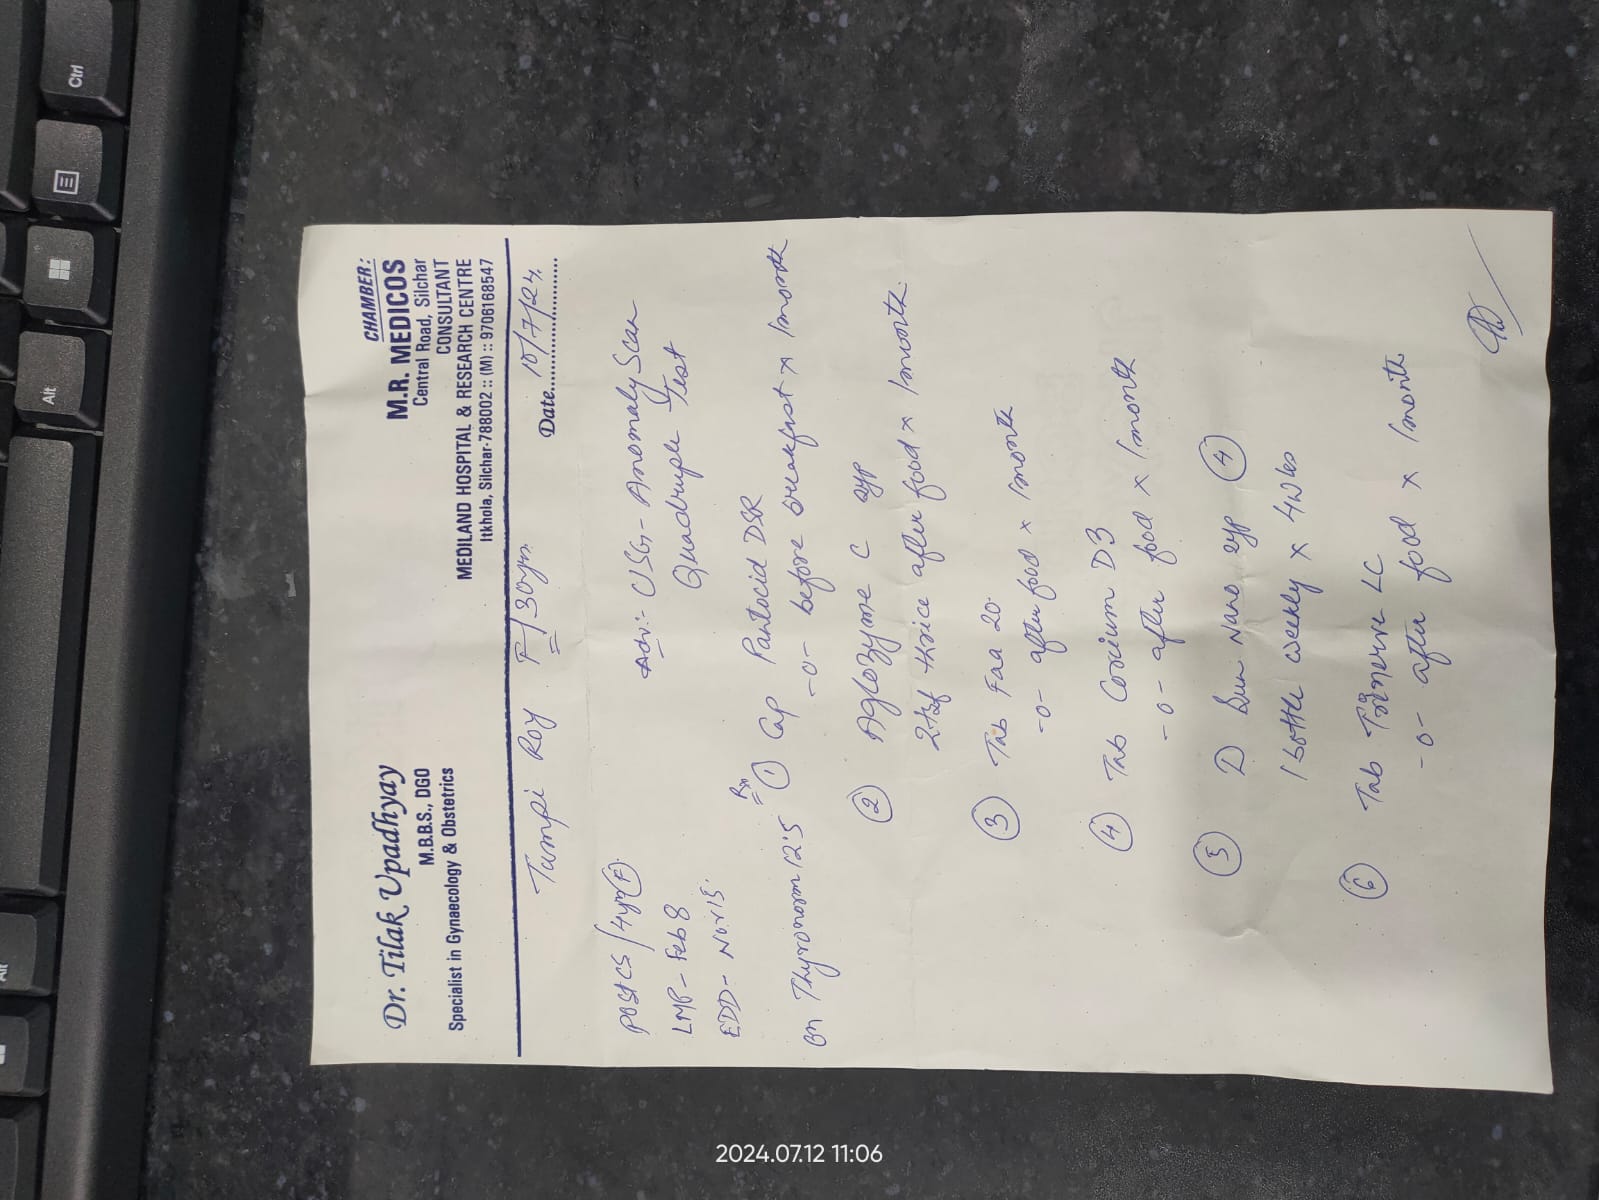 Dr. Tilak Upadhyay
M.B.B.S., DGO
Specialist in Gynaecology & Obstetrics
CHAMBER:
M.R. MEDICOS
Central Road, Silchar
CONSULTANT
MEDILAND HOSPITAL & RESEARCH CENTRE
Itkhola, Silchar-788002 :: (M) :: 9706168547
Tampi Roy F/30yrs.
Date 10/7/24.
Post CS / 4yr (F).
LMP - Feb 8
EDD - Nov 15.
on Thyronorm 12.5
Adv:- USG - Anomaly Scan
Quadruple Test
Rx
① Cap Pantocid DSR
-0- before breakfast x 1month
② Aglozyme C syp
2tsf thrice after food x 1month.
③ Tab Faa 20.
-0- after food x 1month
④ Tab Corium D3
-0- after food x 1month
⑤ D Nano syp ④
1bottle weekly x 4wks
⑥ Tab LC
-0- after food x 1month
Ctrl
Alt
Alt
2024.07.12 11:06